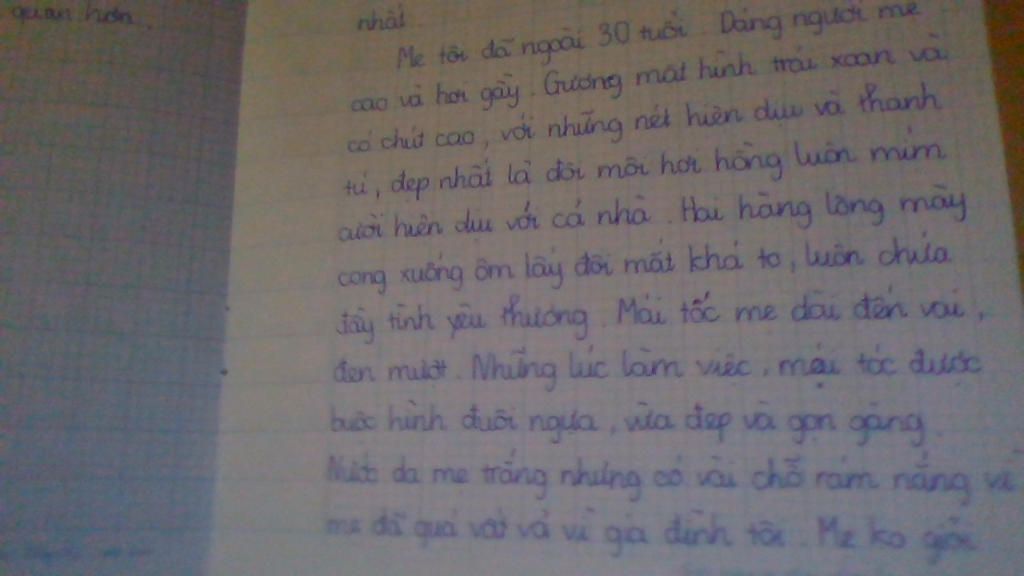 quan hơn.
nhất.
Mẹ tôi đã ngoài 30 tuổi. Dáng người mẹ
cao và hơi gầy. Gương mặt hình trái xoan và
có chút cao, với những nét hiền dịu và thanh
tú, đẹp nhất là đôi môi hơi hồng luôn mỉm
cười hiền dịu với cả nhà. Hai hàng lông mày
cong xuống ôm lấy đôi mắt khá to, luôn chứa
đầy tình yêu thương. Mái tốc mẹ dài đến vai,
đen mượt. Những lúc làm việc, mái tóc được
buộc hình đuôi ngựa, vừa đẹp và gọn gàng.
Nước da mẹ trắng nhưng có vài chỗ rám nắng vì
mẹ đã quá vất vả vì gia đình tôi. Mẹ ko